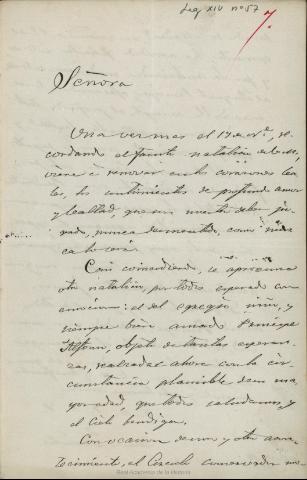 Leg XIV nº 57
7.
Señora
Una vez mas el 17 de
cordando el fausto natalicio de
viene á renovar en los corazones lea-
les, los sentimientos de profundo amor
y lealtad, que es nuestro deber
nunca desmentido, como
ca lo será.
Coincidiendo, se aproxima
otro natalicio, por todos esperado con
emocion: el del egregio niño, y
siempre bien amado Principe
Alfonso, objeto de tantas esperan-
zas, realzadas ahora con la cir-
cunstancia plausible de su ma-
yor edad, que todos saludamos, y
el Cielo bendiga.
Con ocasion de uno y otro acon-
tecimiento, el Consul
Real Academia de la Historia